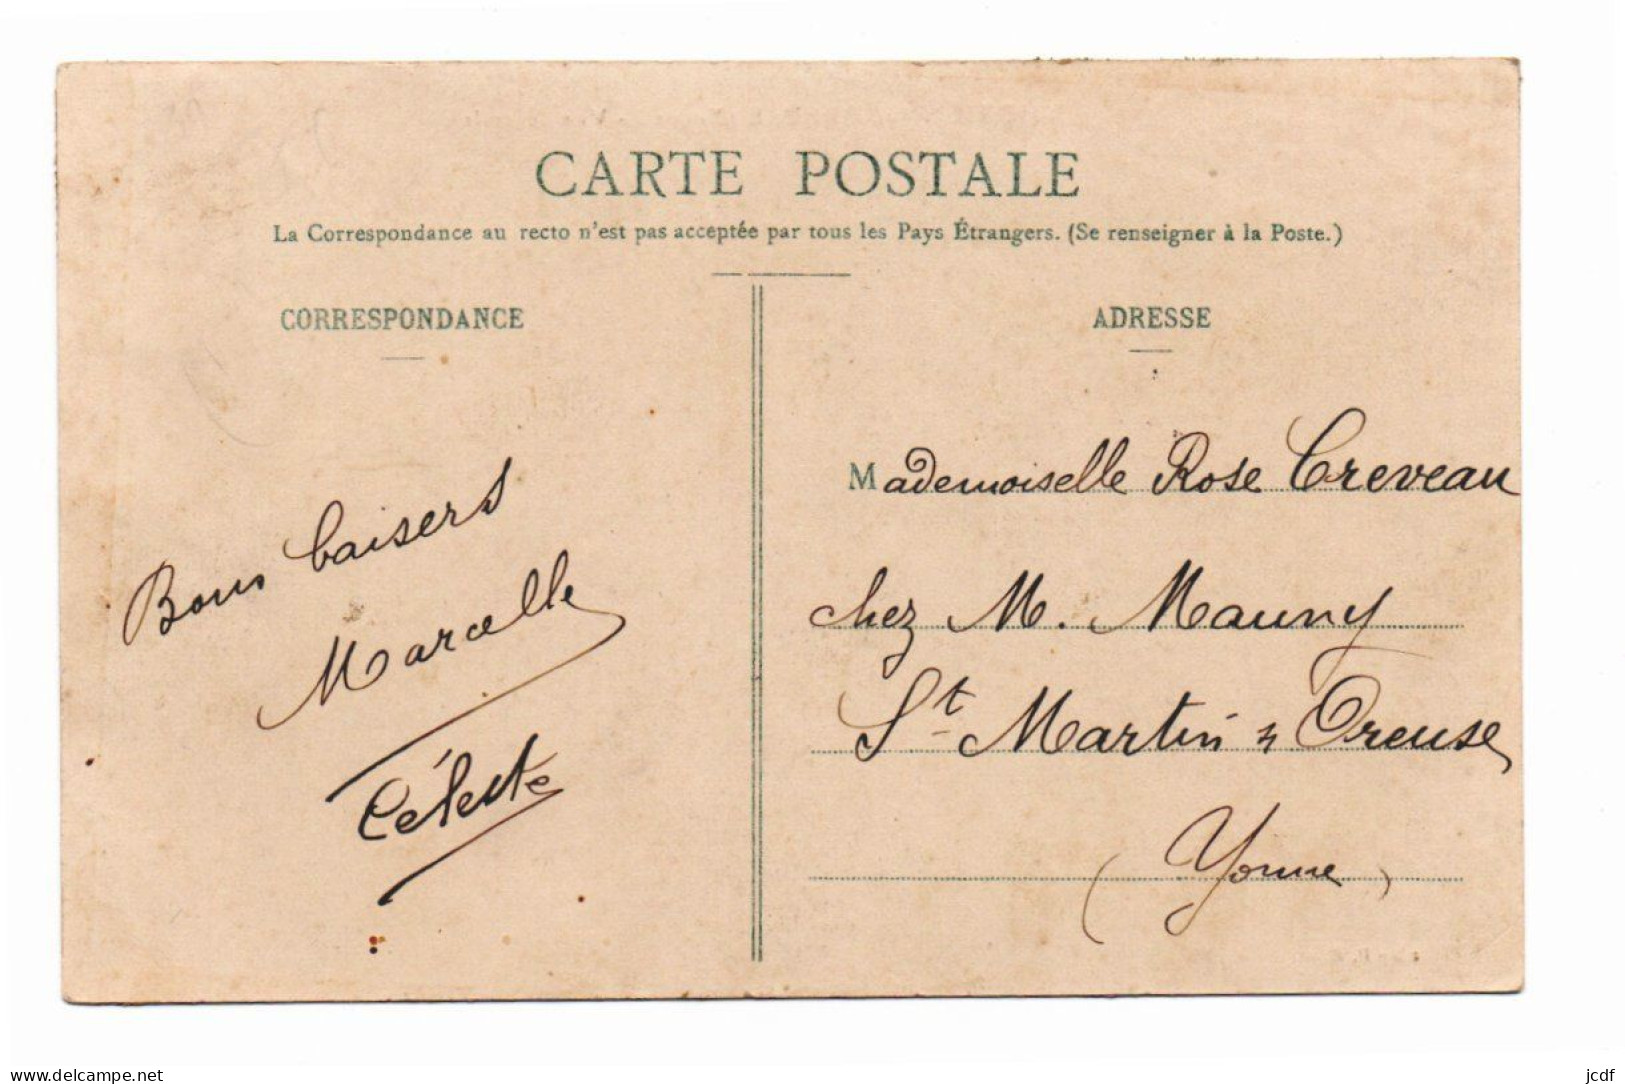 CARTE POSTALE
La Correspondance au recto n'est pas acceptée par tous les Pays Étrangers. (Se renseigner à la Poste.)
CORRESPONDANCE
Bons baisers
Marcelle
Céleste
ADRESSE
Mademoiselle Rose Creveau
chez M. Mauny
St Martin s Oreuse
(Yonne)
www.delcampe.net
jcdf